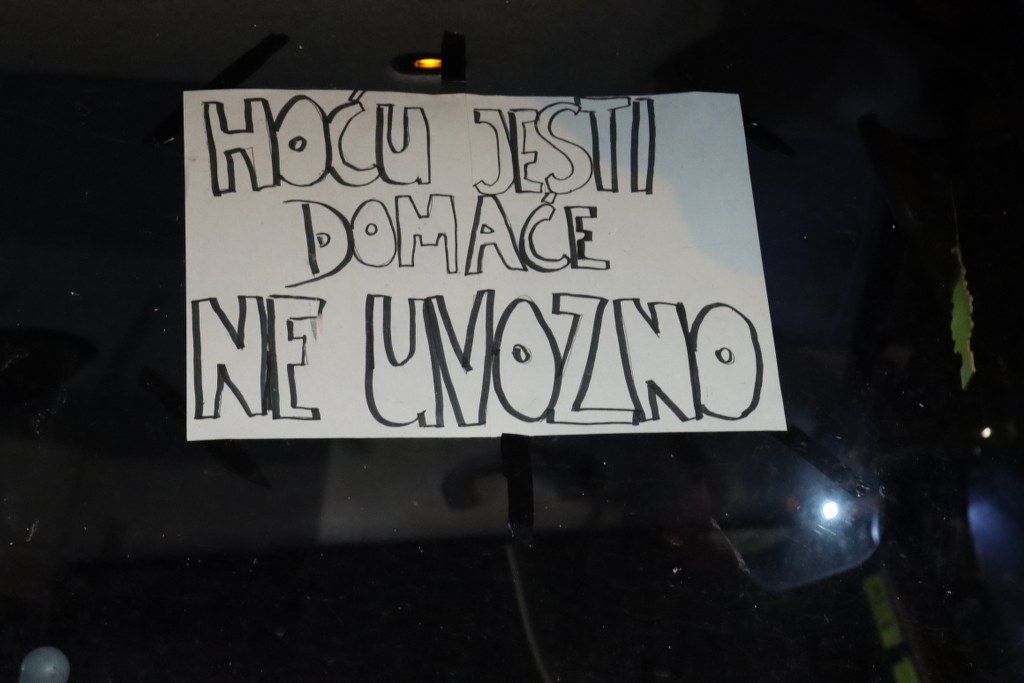 HOĆU JESTI
DOMAĆE
NE UVOZNO